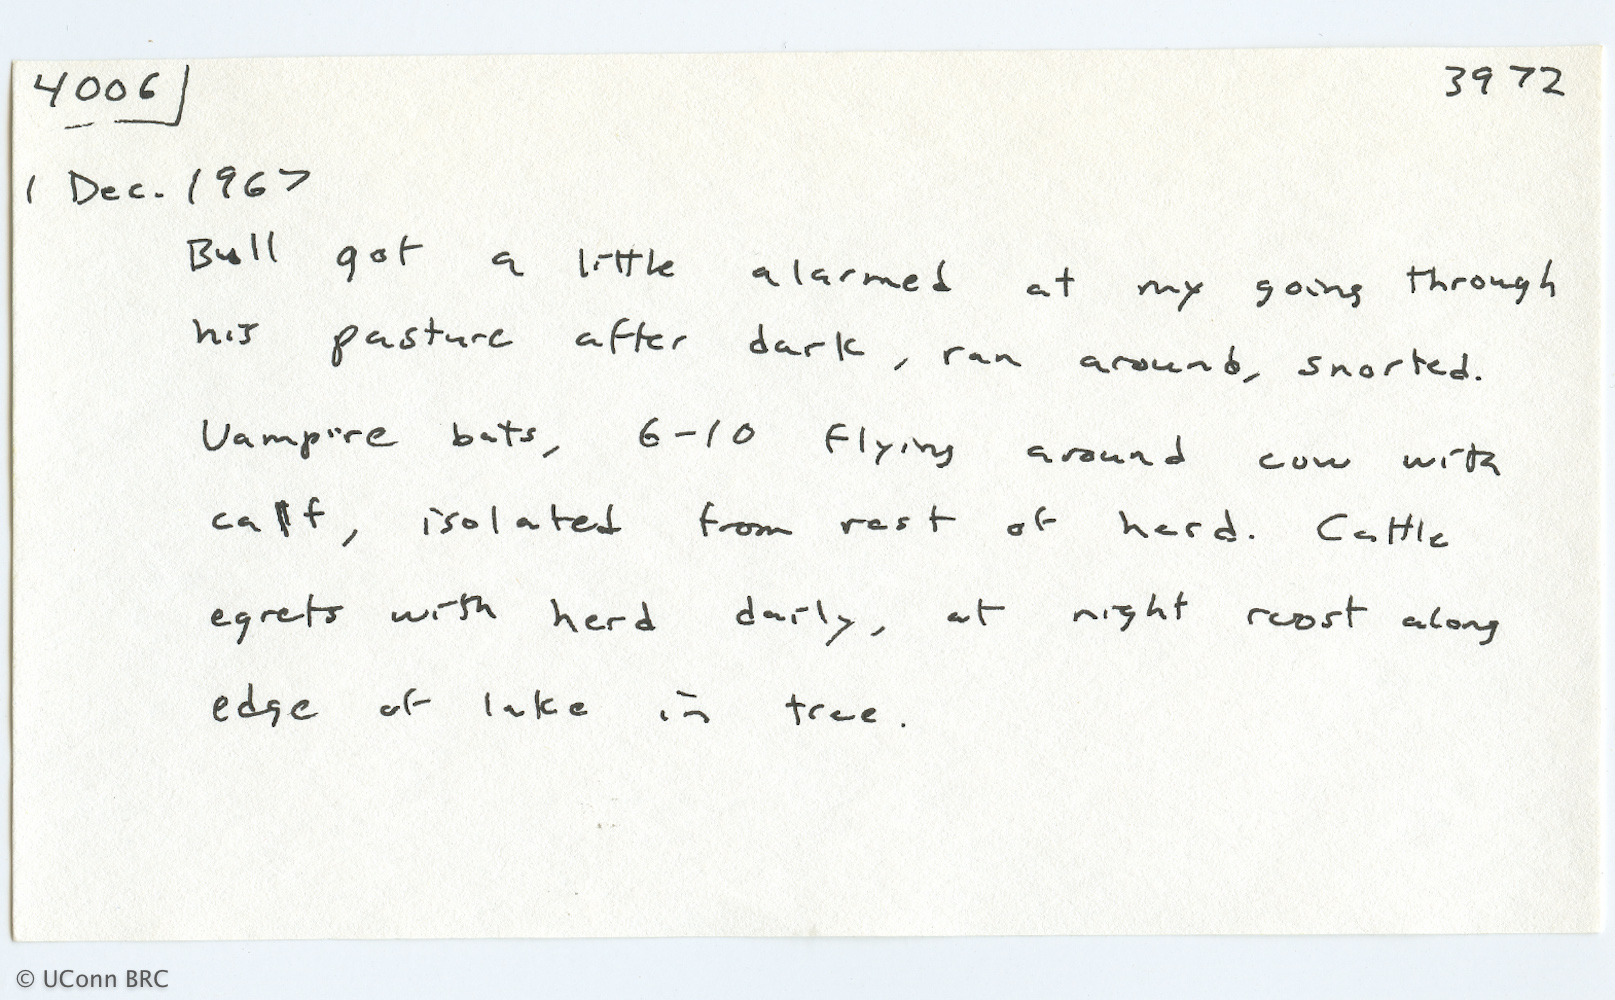 4006 3972
1 Dec. 1967
Bull got a little alarmed at my going through
his pasture after dark, ran around, snorted.
Vampire bats, 6-10 flying around cow with
calf, isolated from rest of herd. Cattle
egrets with herd daily, at night roost along
edge of lake in tree.
© UConn BRC